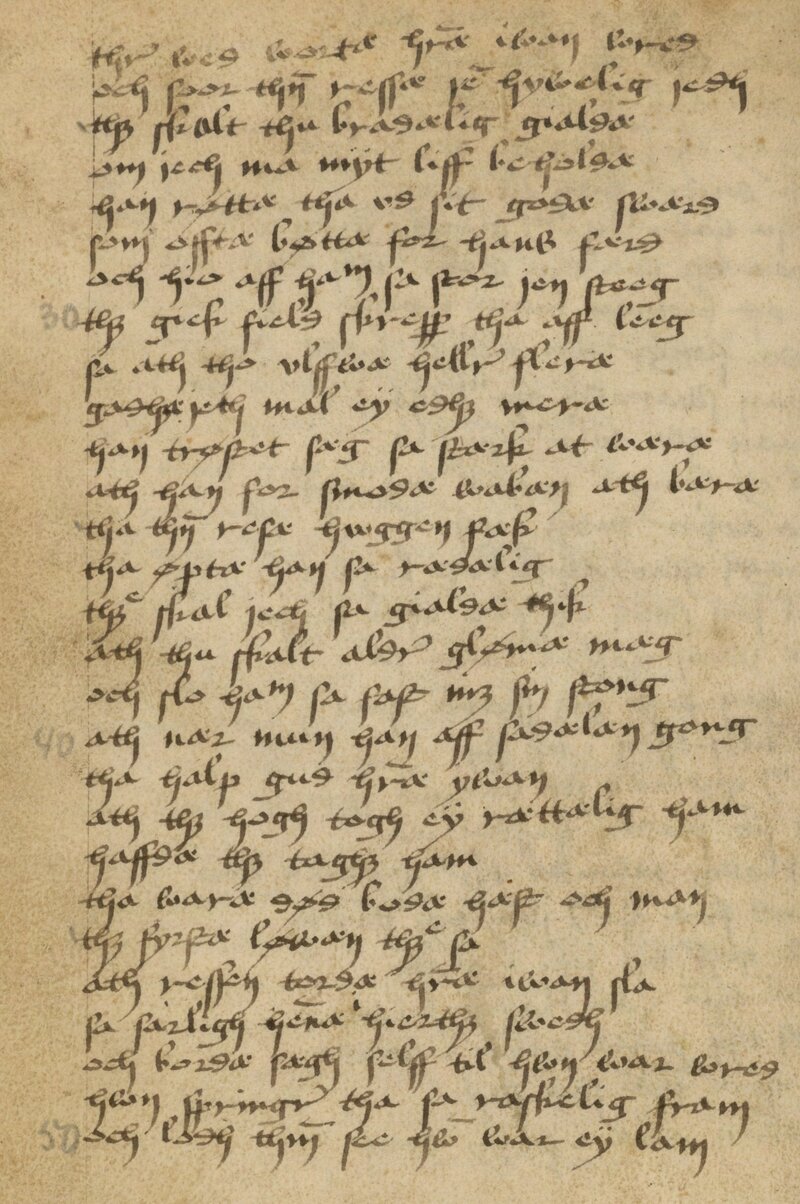 thr̄ wes wortæ hr̄æ iwan wred
och swor thn̄ ressæ jē hywelig jedh
thꝫ skalt thu bradælig gialdæ
om jech ma myt liff beholdæ
han røttæ tha vd sit godæ swærd
som offtæ bøttæ for hans færd
och hio aff ham sa stor jen steeg
30 thꝫ giek field skrepp tha aff leeg
sa ath tho vlffwæ hellr̄ fleræ
gadhæ jeth mal ey edhꝫ meræ
han trøstet sæg sa stærk at wæræ
ath han for smodæ waban ath bæræ
tha thn̄ resæ hwggen fæk
tha øptæ han sa rædælig
thꝫe skal jech sa gialdæ thik
ath thu skalt aldr̄ glømæ mæg
och slo ham sa fast mꝫ sin stong
40 ath nær mun han aff sadælæn gong
tha halp gud hr̄æ ywan
ath thꝫ hogh togh eÿ rættælig ham
haffdæ thꝫ taghꝫ ham
tha waræ død bodæ hæst och man
thꝫ fyrstæ løwæn thꝫe sa
ath ressen tordæ hr̄æ iwan sla
sa sarligh hēnæ hierthꝫ swedh
och bordæ sægh selff til hwn war wred
hwn springr̄ tha sa raskelig fram
50 och lodh thm̄ see hwō war eÿ lam